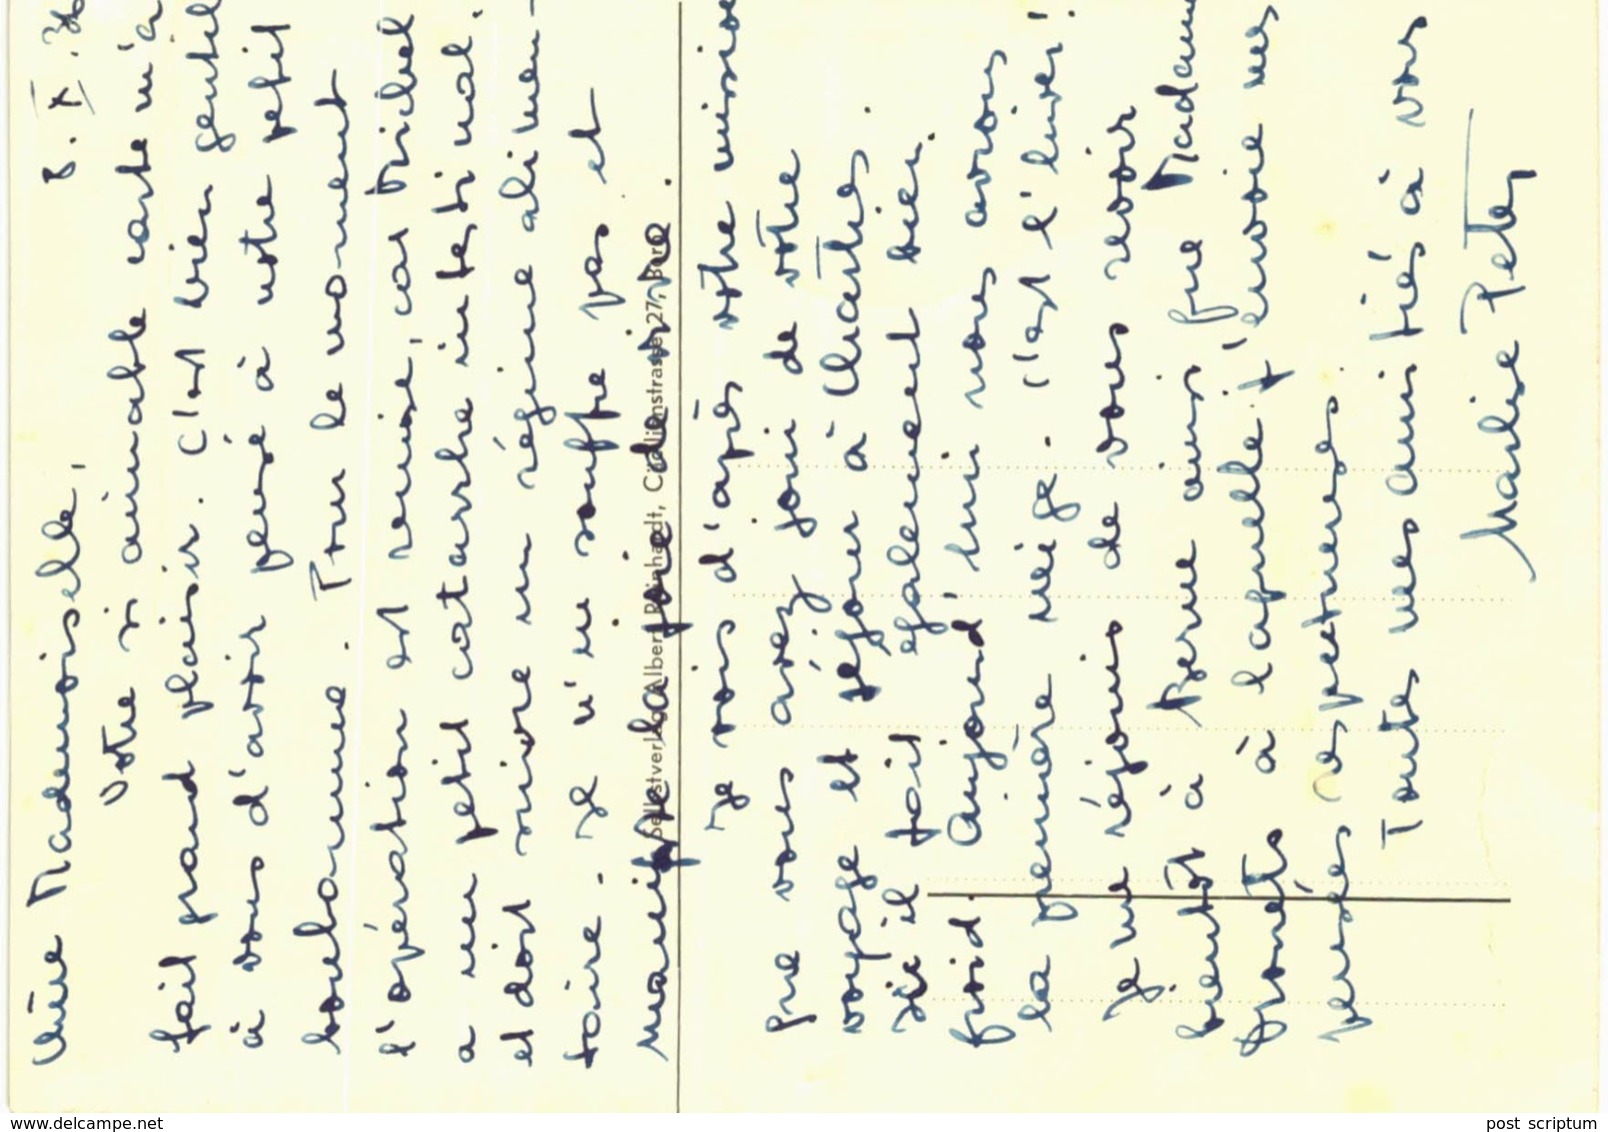 8. X. 36
Chère Mademoiselle,
Votre si aimable carte m'a
fait grand plaisir. C'est bien gentil
à vous d'avoir pensé à notre petit
bonhomme. Pour le moment
l'opération est remise, car Michel
a un petit catarrhe intestinal.
et doit suivre un régime alimen-
taire. Je n'en souffre pas et
manifeste la joie de vivre.
Je vois d'après votre missive
que vous avez joui de votre
voyage et séjour à Chartres.
Ici il fait également bien
froid. Aujourd'hui nous avons
la première neige. C'est l'hiver!
Je me réjouis de vous revoir
bientôt à Berne ainsi que Madame
à laquelle j'envoie mes
pensées respectueuses.
Toutes mes amitiés à vous
Marlise Peter
Selbstverlag Albert Reinhardt, Cäcilienstrasse 27, Bern
www.delcampe.net
post scriptum